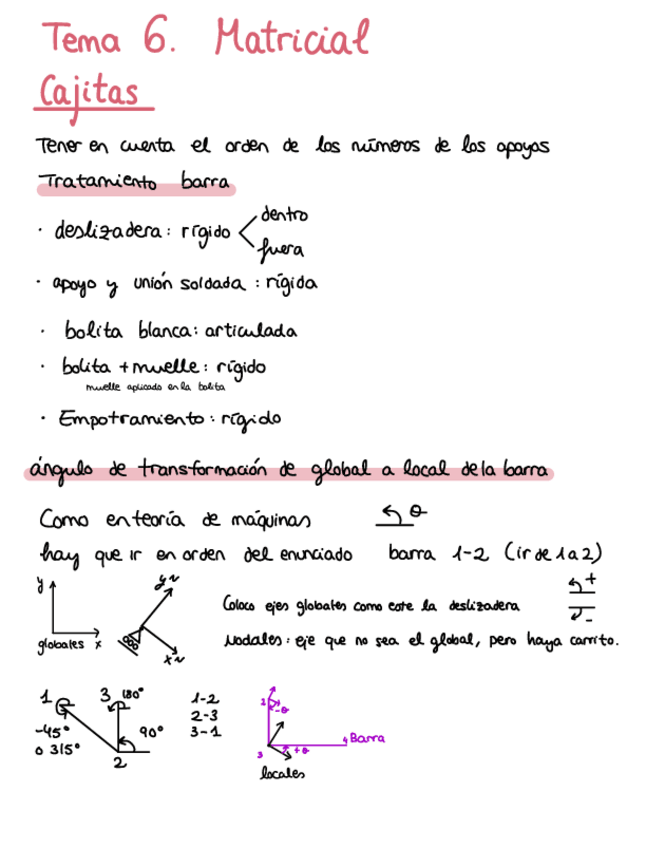 Tema 6. Matricial
Cajitas
Tener en cuenta el orden de los números de los apoyos
Tratamiento barra
· deslizadera: rígido < dentro
fuera
· apoyo y unión soldada: rígida
· bolita blanca: articulada
· bolita + muelle: rígido
muelle aplicado en la bolita
· Empotramiento: rígido
ángulo de transformación de global a local de la barra
Como en teoría de máquinas θ
hay que ir en orden del enunciado barra 1-2 (ir de 1 a 2)
y y~ +
Coloco ejes globales como este la deslizadera -
globales x x~ Nodales: eje que no sea el global, pero haya carrito.
1 3 180° 1-2 2 -θ
-45° 90° 2-3 4 Barra
o 315° 3-1 3 +θ
2 locales